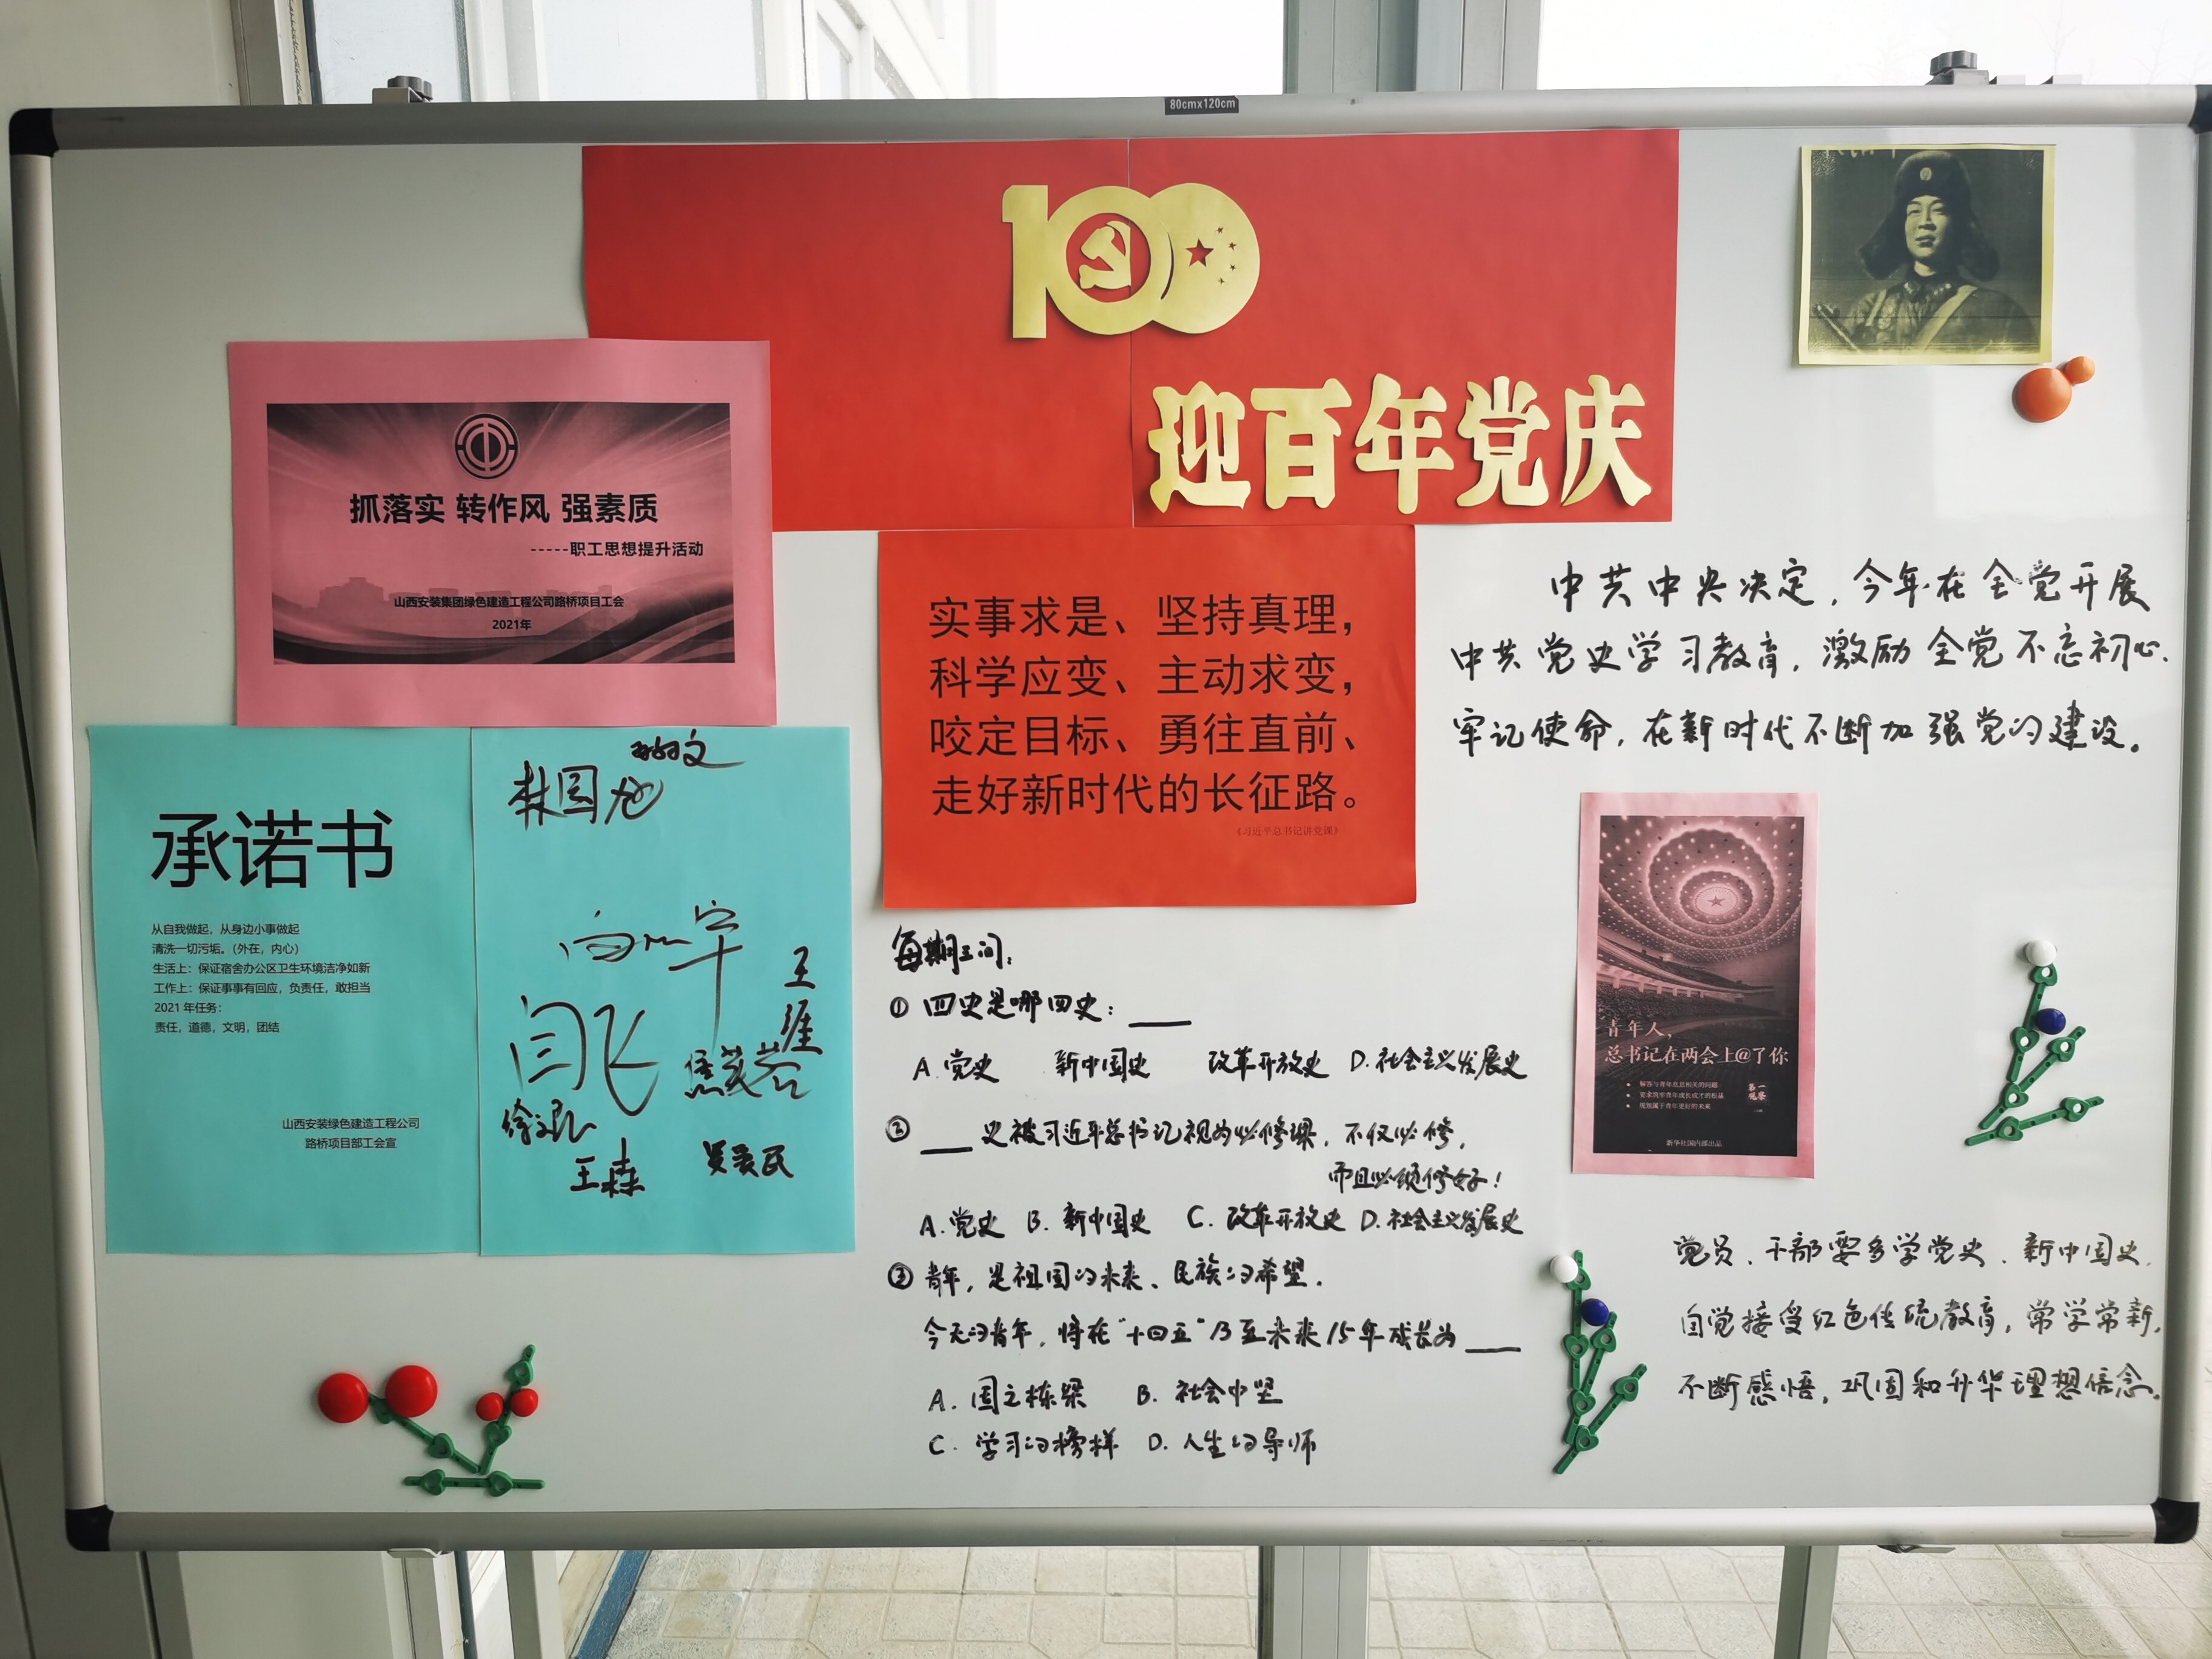 80cm×120cm
100
迎百年党庆
抓落实 转作风 强素质
-----职工思想提升活动
山西安装集团绿色建造工程公司路桥项目工会
2021年
实事求是、坚持真理，
科学应变、主动求变，
咬定目标、勇往直前、
走好新时代的长征路。
《习近平总书记讲党课》
中共中央决定，今年在全党开展
中共党史学习教育，激励全党不忘初心.
牢记使命，在新时代不断加强党的建设。
承诺书
从自我做起，从身边小事做起
清洗一切污垢。（外在，内心）
生活上：保证宿舍办公区卫生环境洁净如新
工作上：保证事事有回应，负责任，敢担当
2021 年任务：
责任，道德，文明，团结
山西安装绿色建造工程公司
路桥项目部工会宣
闫飞
王
王森
每期三问：
① 四史是哪四史：
A.党史 新中国史 改革开放史 D.社会主义发展史
② 史被习近平总书记视为必修课，不仅必修，
而且必须修好！
A.党史 B. 新中国史 C. 改革开放史 D.社会主义发展史
③ 青年，是祖国的未来、民族的希望.
今天的青年，将在“十四五”乃至未来15年成长为
A. 国之栋梁 B. 社会中坚
C. 学习的榜样 D. 人生的导师
青年人，
总书记在两会上@了你
解答与青年息息相关的问题
规划属于青年更好的未来
第一观察
新华社国内部出品
党员、干部要多学党史、新中国史，
自觉接受红色传统教育，常学常新，
不断感悟，巩固和升华理想信念。